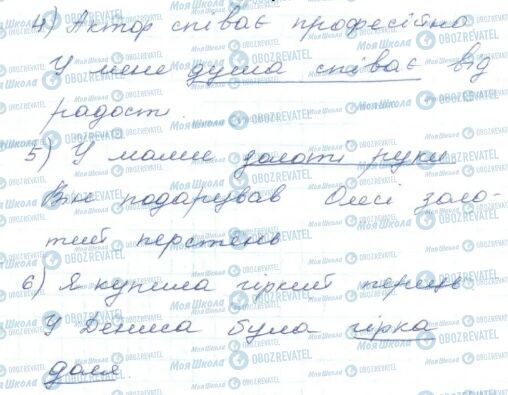 4) Актор співає професійно
У мене душа співає від
радості.
5) У мами золоті руки.
Він подарував Олесі золо-
тий перстень
6) Я купила гіркий перець
У Дениса була гірка
доля.